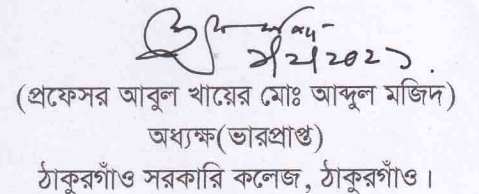 ২/২/২০২১
(প্রফেসর আবুল খায়ের মোঃ আব্দুল মজিদ)
অধ্যক্ষ(ভারপ্রাপ্ত)
ঠাকুরগাঁও সরকারি কলেজ, ঠাকুরগাঁও।